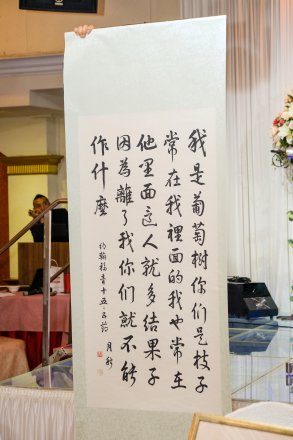 我是葡萄樹你們是枝子
常在我裡面的我也常在
他里面這人就多結果子
因為離了我你們就不能
作什麼
約翰福音十五·五節